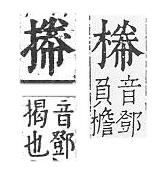 音鄧
負擔
音鄧
揭也